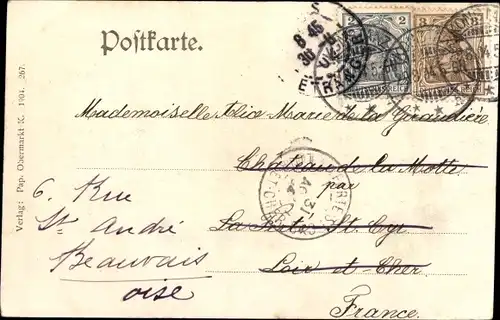 Postkarte.
2
3
8 45
30-5
ETRANGER
Mademoiselle Alix Marie de la Giraudière
Château de la Motte
par
La Ferté St. Cyr
Loir et Cher
France.
6. Rue
St André
Beauvais
Oise
Verlag: Pap. Obermarkt K. 1904. 267.